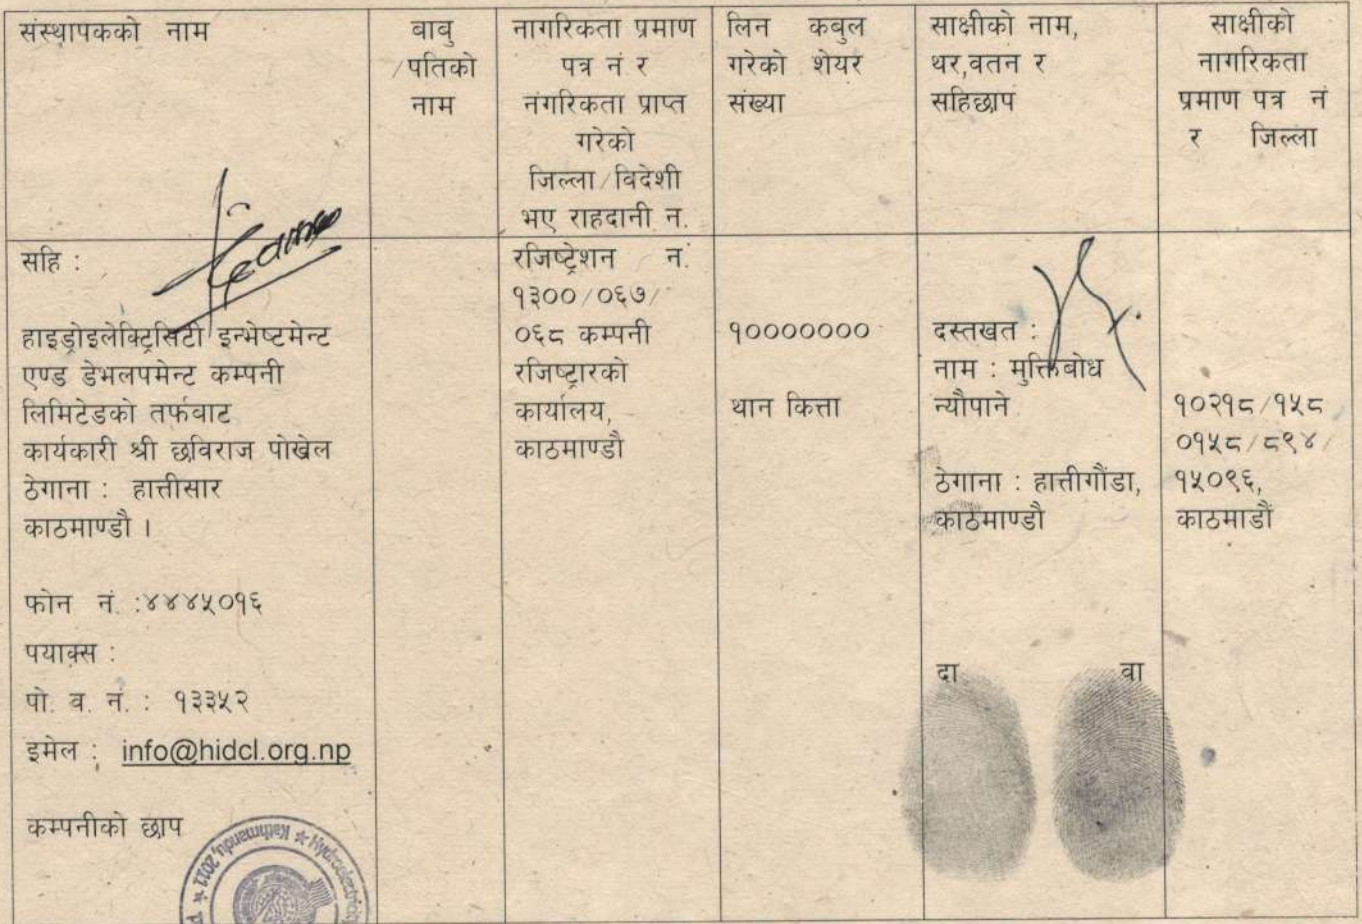 संस्थापकको नाम
बाबु
/पतिको
नाम
नागरिकता प्रमाण
पत्र नं र
नंगरिकता प्राप्त
गरेको
जिल्ला/विदेशी
भए राहदानी न.
लिन कबुल
गरेको शेयर
संख्या
साक्षीको नाम,
थर,वतन र
सहिछाप
साक्षीको
नागरिकता
प्रमाण पत्र नं
र जिल्ला
सहि :
हाइड्रोइलेक्ट्रिसिटी इन्भेष्टमेन्ट
एण्ड डेभलपमेन्ट कम्पनी
लिमिटेडको तर्फवाट
कार्यकारी श्री छविराज पोखेल
ठेगाना : हात्तीसार
काठमाण्डौ ।
फोन नं. :४४४५०१६
पयाक्स :
पो. व. नं. : १३३५२
इमेल : info@hidcl.org.np
कम्पनीको छाप
Kathmandu, 2011 * Hydroelectricity
रजिष्ट्रेशन नं.
१३००/०६७/
०६८ कम्पनी
रजिष्ट्रारको
कार्यालय,
काठमाण्डौ
१०००००००
थान कित्ता
दस्तखत :
नाम : मुक्तिबोध
न्यौपाने
ठेगाना : हात्तीगौंडा,
काठमाण्डौ
दा वा
१०२१८/१५८
०१५८/८९४/
१५०९६,
काठमाडौं